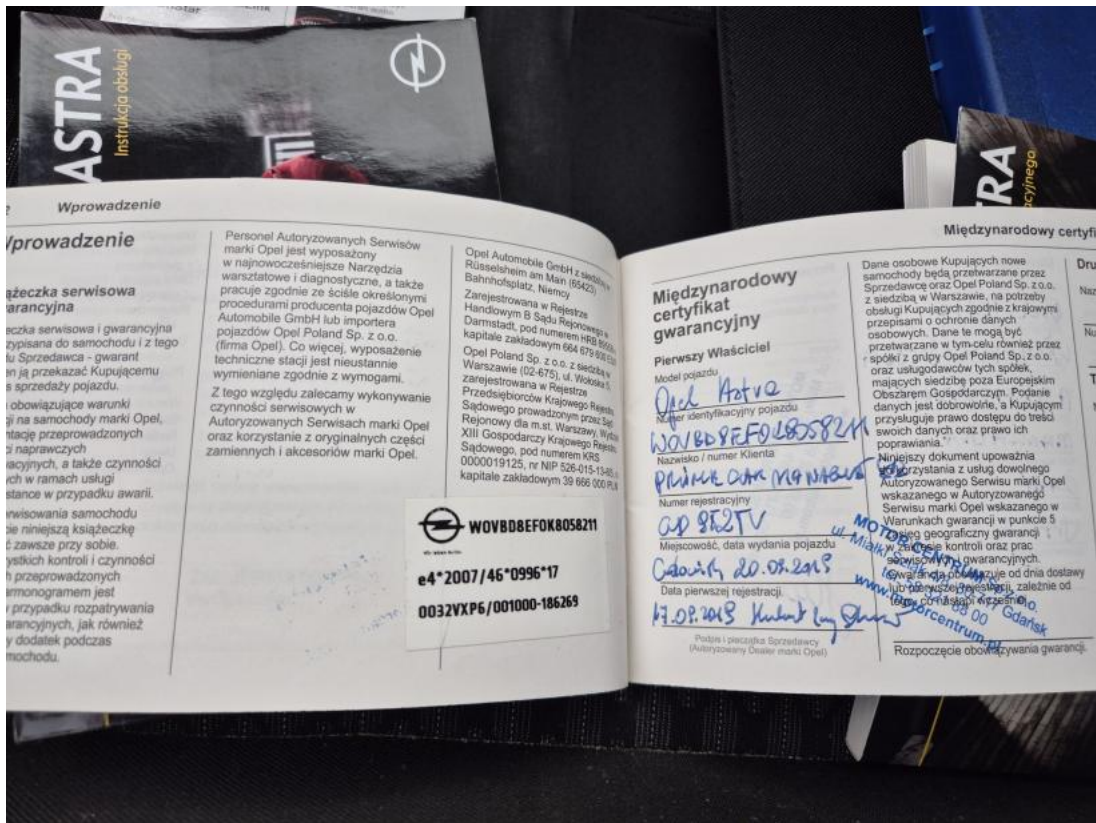 ASTRA
Instrukcja obsługi
Wprowadzenie
Wprowadzenie
warancyjna
eczka serwisowa i gwarancyjna
zypisana do samochodu i z tego
du Sprzedawca - gwarant
en ją przekazać Kupującemu
s sprzedaży pojazdu.
obowiązujące warunki
ji na samochody marki Opel,
ntację przeprowadzonych
ci naprawczych
wacyjnych, a także czynności
ch w ramach usługi
stance w przypadku awarii.
erwisowania samochodu
cie niniejszą książeczkę
ć zawsze przy sobie.
ystkich kontroli i czynności
h przeprowadzonych
armonogramem jest
przypadku rozpatrywania
arancyjnych, jak również
y dodatek podczas
mochodu.
Personel Autoryzowanych Serwisów
marki Opel jest wyposażony
w najnowocześniejsze Narzędzia
warsztatowe i diagnostyczne, a także
pracuje zgodnie ze ściśle określonymi
procedurami producenta pojazdów Opel
Automobile GmbH lub importera
pojazdów Opel Poland Sp. z o.o.
(firma Opel). Co więcej, wyposażenie
techniczne stacji jest nieustannie
wymieniane zgodnie z wymogami.
Z tego względu zalecamy wykonywanie
czynności serwisowych w
Autoryzowanych Serwisach marki Opel
oraz korzystanie z oryginalnych części
zamiennych i akcesoriów marki Opel.
Opel Automobile GmbH z siedzibą w
Rüsselsheim am Main (65423)
Bahnhofsplatz, Niemcy
Zarejestrowana w Rejestrze
Handlowym B Sądu Rejonowego w
Darmstadt, pod numerem HRB
kapitale zakładowym 664 679
Opel Poland Sp. z o.o. z siedzibą w
Warszawie (02-675), ul. Wołoska 5
zarejestrowana w Rejestrze
Przedsiębiorców Krajowego Rejestru
Sądowego prowadzonym przez Sąd
Rejonowy dla m.st. Warszawy, Wydział
XIII Gospodarczy Krajowego Rejestru
Sądowego, pod numerem KRS
0000019125, nr NIP 526-015-13-85, o
kapitale zakładowym 39 666 000 PLN
W0VBD8EF0K8058211
e4*2007/46*0996*17
0032VXP6/001000-186269
Międzynarodowy certyfi
Międzynarodowy
certyfikat
gwarancyjny
Pierwszy Właściciel
Model pojazdu
Opel Astra
Numer identyfikacyjny pojazdu
W0VBD8EF0K8058211
Nazwisko / numer Klienta
Numer rejestracyjny
Miejscowość, data wydania pojazdu
Gdańsk 20.09.2019
Data pierwszej rejestracji.
17.09.2019
Podpis i pieczątka Sprzedawcy
(Autoryzowany Dealer marki Opel)
Dane osobowe Kupujących nowe
samochody będą przetwarzane przez
Sprzedawcę oraz Opel Poland Sp. z o.o.
z siedzibą w Warszawie, na potrzeby
obsługi Kupujących zgodnie z krajowymi
przepisami o ochronie danych
osobowych. Dane te mogą być
przetwarzane w tym celu również przez
spółki z grupy Opel Poland Sp. z o.o.
oraz usługodawców tych spółek,
mających siedzibę poza Europejskim
Obszarem Gospodarczym. Podanie
danych jest dobrowolne, a Kupującym
przysługuje prawo dostępu do treści
swoich danych oraz prawo ich
poprawiania.
Niniejszy dokument upoważnia
do korzystania z usług dowolnego
Autoryzowanego Serwisu marki Opel
wskazanego w Autoryzowanego
Serwisu marki Opel wskazanego w
Warunkach gwarancji w punkcie 5
Zasięg geograficzny gwarancji
w zakresie kontroli oraz prac
serwisowych i gwarancyjnych.
Gwarancja obowiązuje od dnia dostawy
lub pierwszej rejestracji, zależnie od
tego, co nastąpi wcześniej.
Rozpoczęcie obowiązywania gwarancji.
MOTOR CENTRUM Sp. z o.o.
Gdańsk
www.motorcentrum.pl